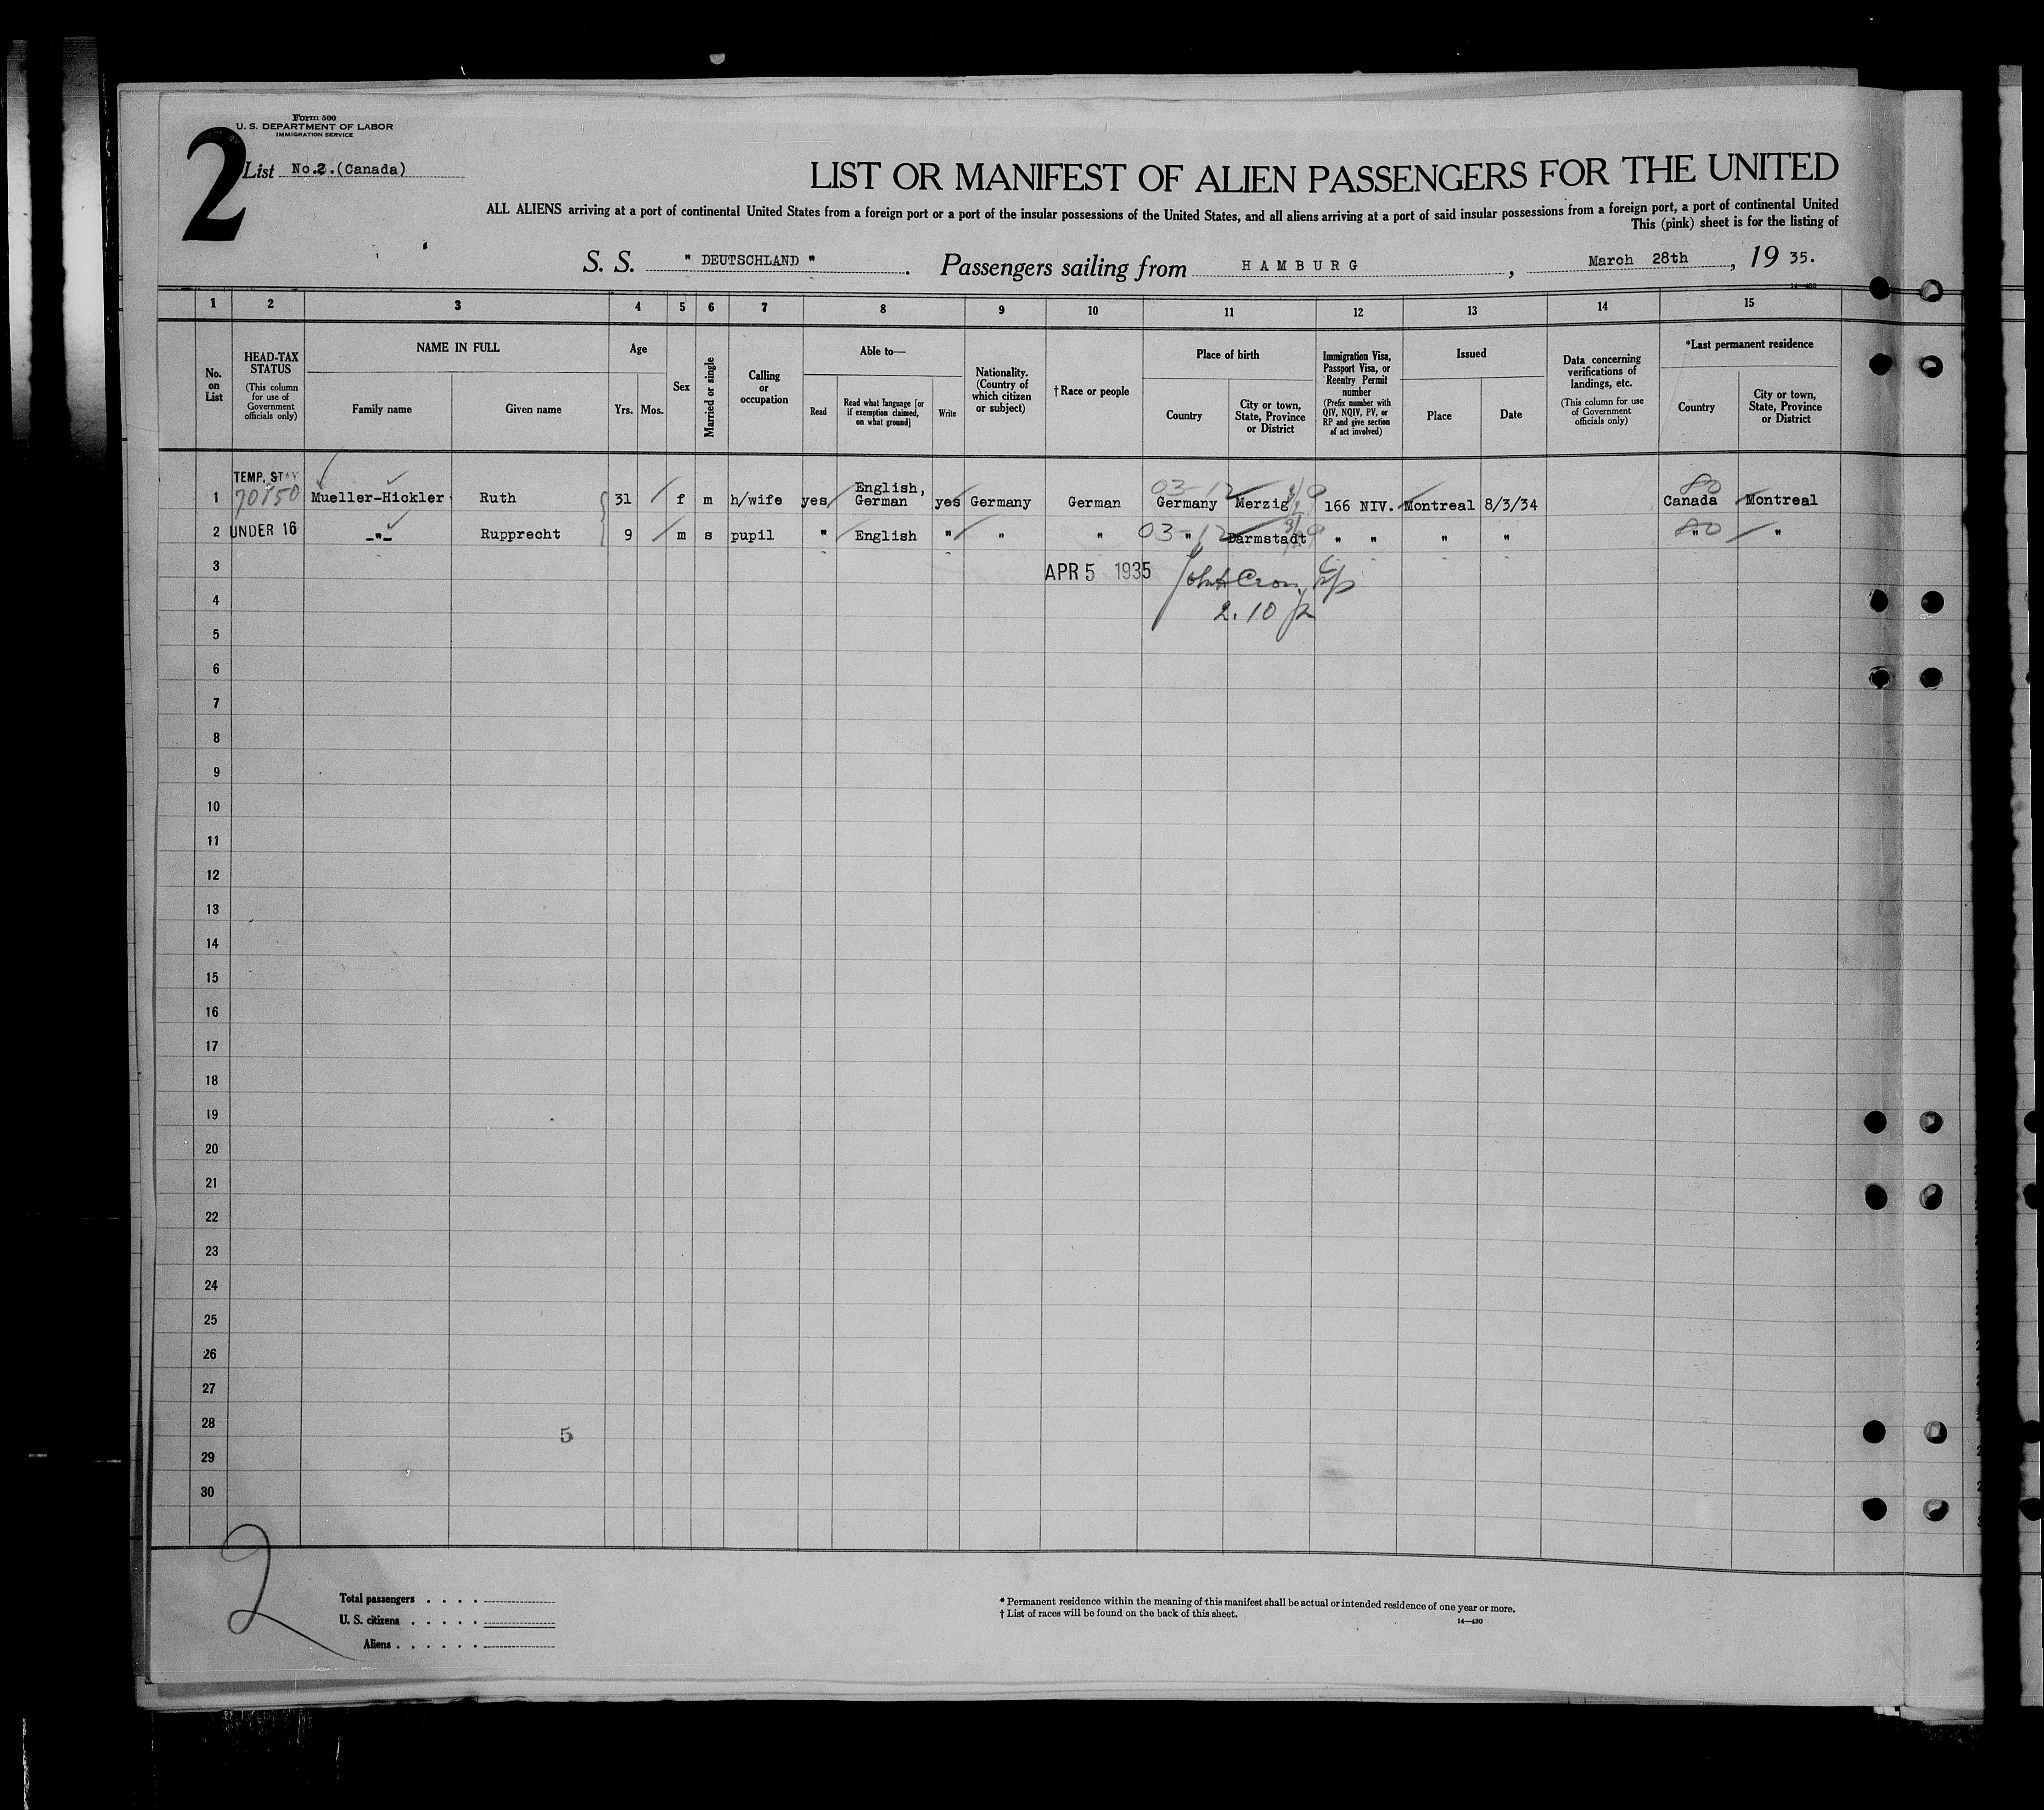 Form 500
U. S. DEPARTMENT OF LABOR
IMMIGRATION SERVICE
2
List No.2.(Canada)
LIST OR MANIFEST OF ALIEN PASSENGERS FOR THE UNITED
ALL ALIENS arriving at a port of continental United States from a foreign port or a port of the insular possessions of the United States, and all aliens arriving at a port of said insular possessions from a foreign port, a port of continental United
This (pink) sheet is for the listing of
S. S. " DEUTSCHLAND ". Passengers sailing from HAMBURG, March 28th, 19 35.
14—430
1 2 3 4 5 6 7 8 9 10 11 12 13 14 15
No. on List
HEAD-TAX STATUS
(This column for use of Government officials only)
NAME IN FULL
Family name
Given name
Age
Yrs. Mos.
Sex
Married or single
Calling or occupation
Able to—
Read
Read what language [or if exemption claimed, on what ground]
Write
Nationality. (Country of which citizen or subject)
† Race or people
Place of birth
Country
City or town, State, Province or District
Immigration Visa, Passport Visa, or Reentry Permit number
(Prefix number with QIV, NQIV, PV, or RP and give section of act involved)
Issued
Place
Date
Data concerning verifications of landings, etc.
(This column for use of Government officials only)
*Last permanent residence
Country
City or town, State, Province or District
TEMP. STAY
1 70850 Mueller-Hickler Ruth 31 f m h/wife yes English, German yes Germany German Germany Merzig 166 NIV. Montreal 8/3/34 Canada Montreal
03-12 80
2 UNDER 16 -"- Rupprecht 9 m s pupil " English " " " " Darmstadt " " " " " "
03-12 80
3 APR 5 1935
4 2.10
5
6
7
8
9
10
11
12
13
14
15
16
17
18
19
20
21
22
23
24
25
26
27
28
5
29
30
2
Total passengers . . . .
U. S. citizens . . . . .
Aliens . . . . . .
* Permanent residence within the meaning of this manifest shall be actual or intended residence of one year or more.
† List of races will be found on the back of this sheet.
14—430